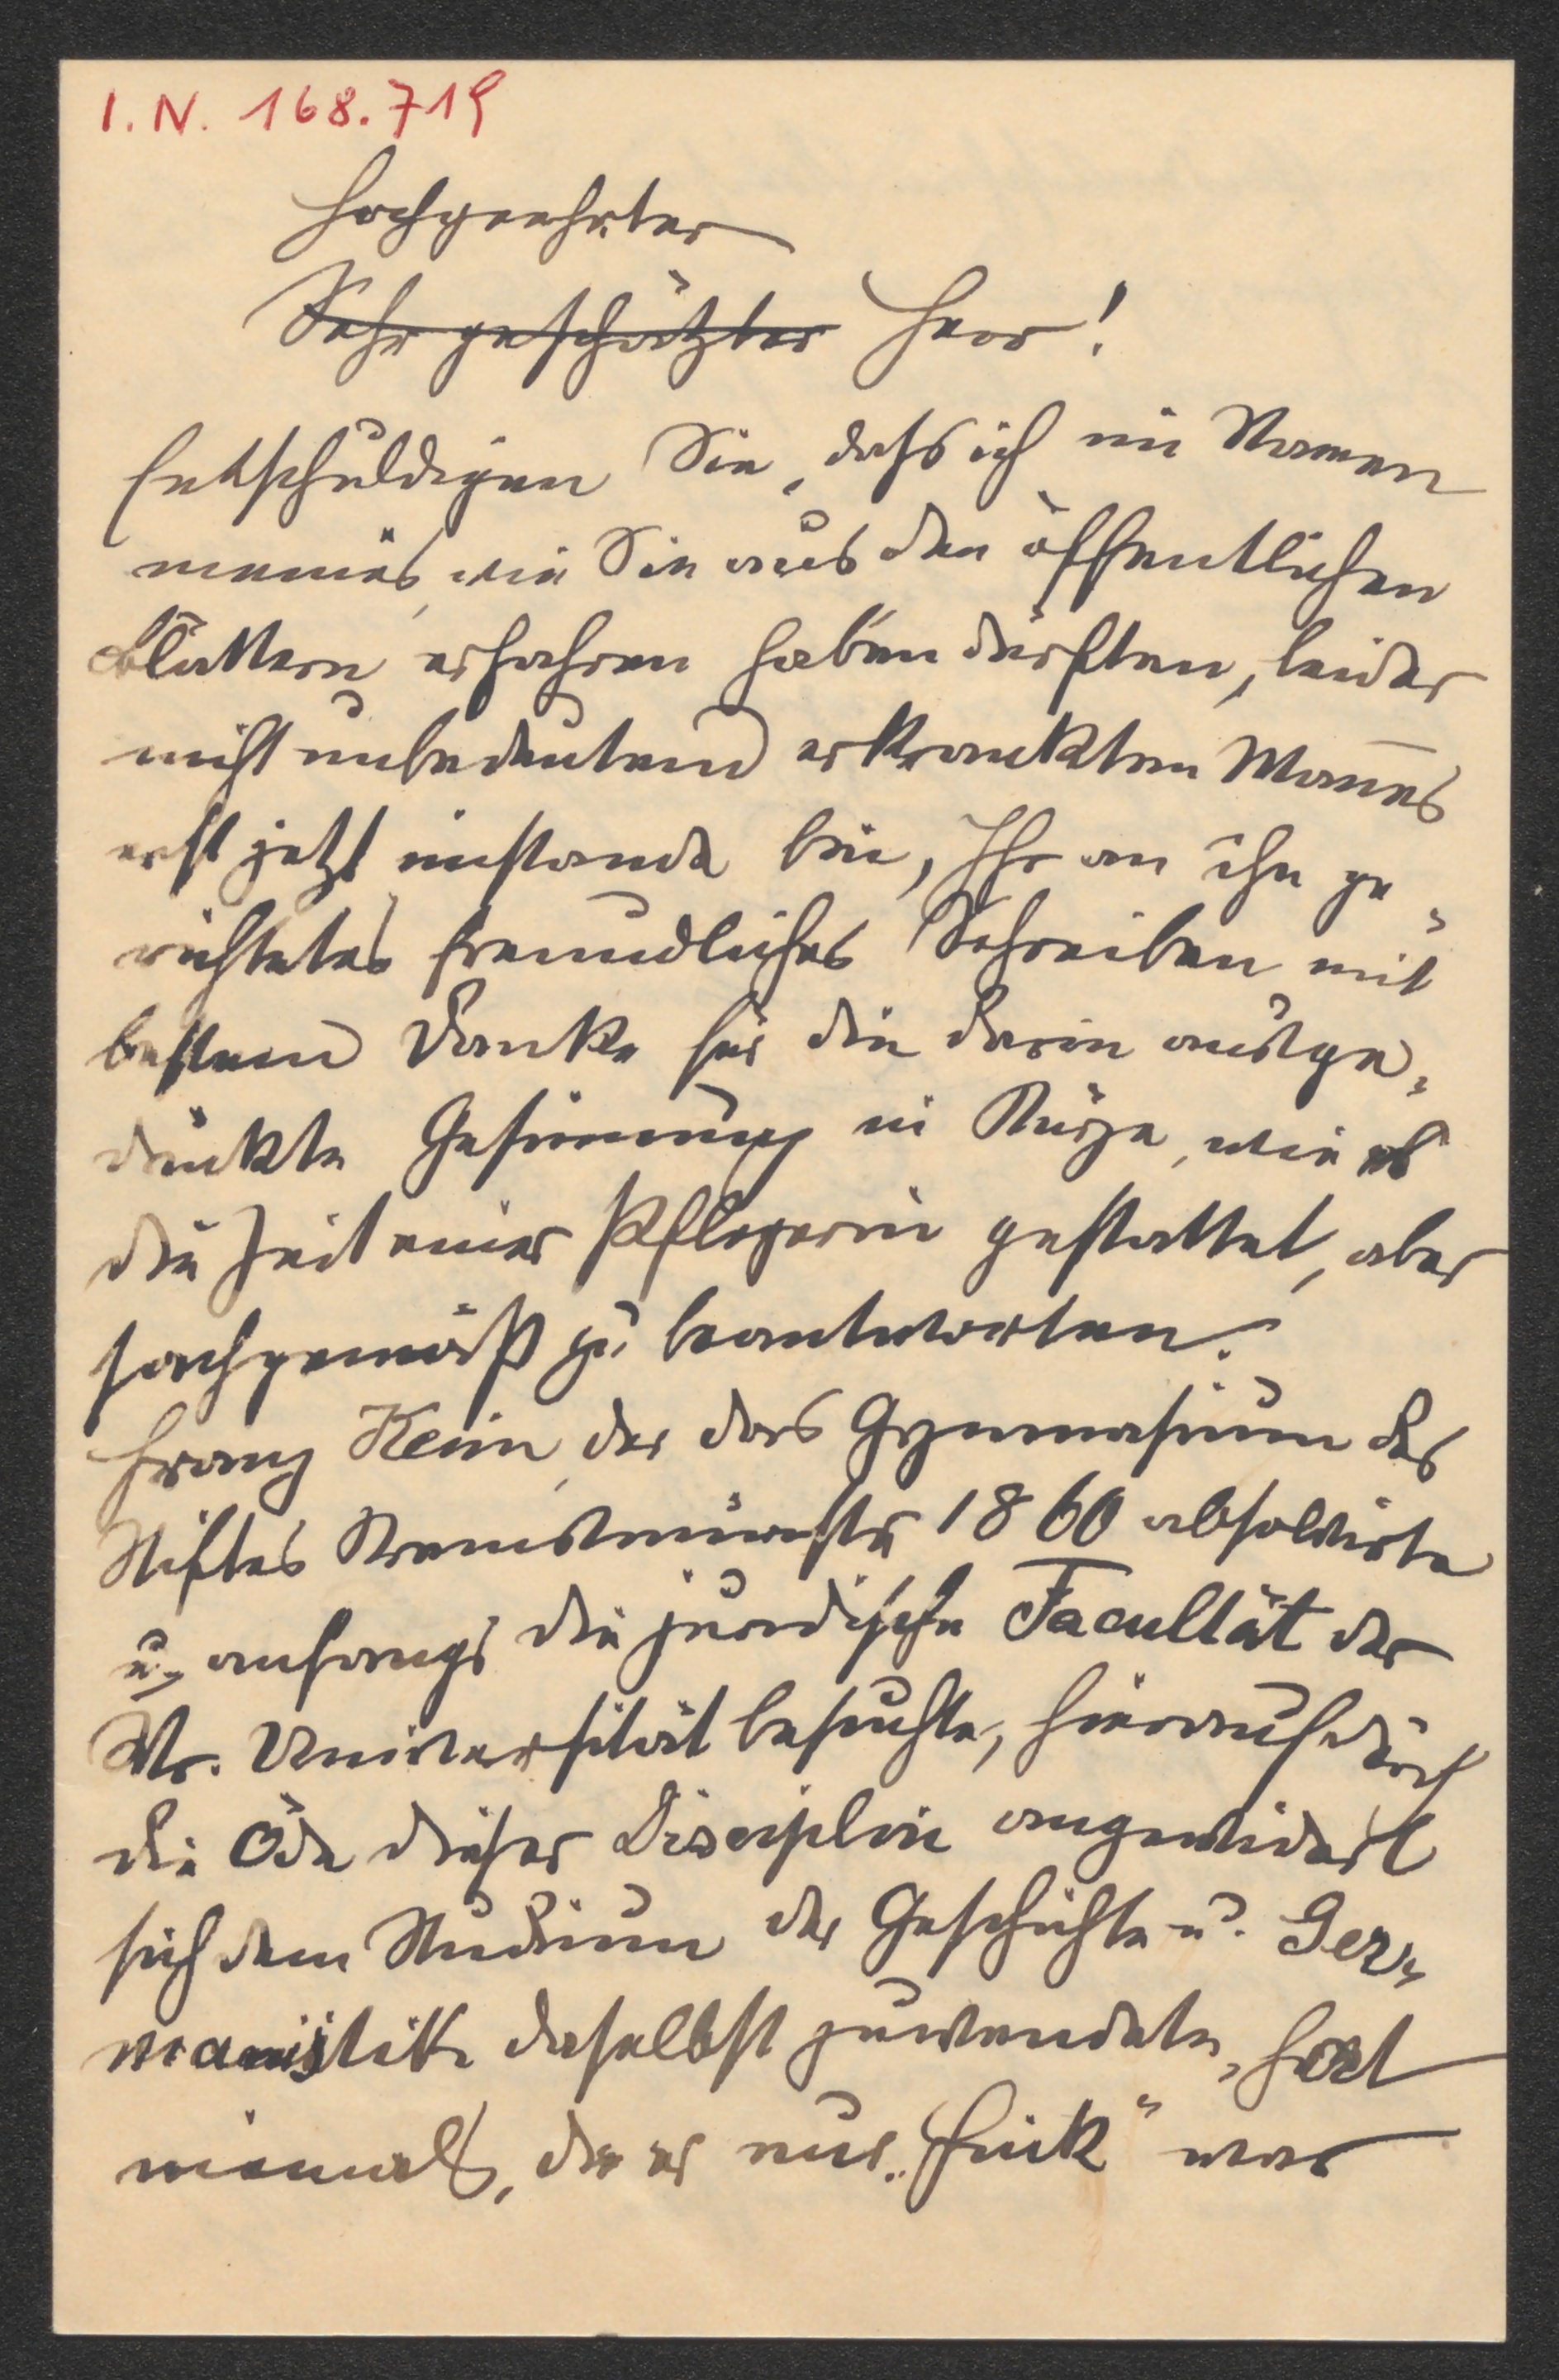 I.N. 168.719
Hochgeehrter
Sehr geschätzter Herr!
Entschuldigen Sie, dass ich im Namen
meines, wie Sie aus den öffentlichen
Blättern erfahren haben dürften, leider
nicht unbedeutend erkrankten Mannes
erst jetzt imstande bin, Ihr an ihn ge-
richtetes freundliches Schreiben mit
bestem Danke für die darin ausge-
drückte Gesinnung in Kürze, wie es
die Zeit einer Pflegerin gestattet, aber
sachgemäß zu beantworten.
Franz Keim, der das Gymnasium des
Stiftes Kremsmünster 1860 absolvirte
u. anfangs die juridische Facultät der
Wr. Universität besuchte, hierauf durch
die Öde dieser Disciplin angewidert
sich dem Studium der Geschichte u. Ger-
manistik daselbst zuwendete, hat
niemals, da er nur „Fink“ war